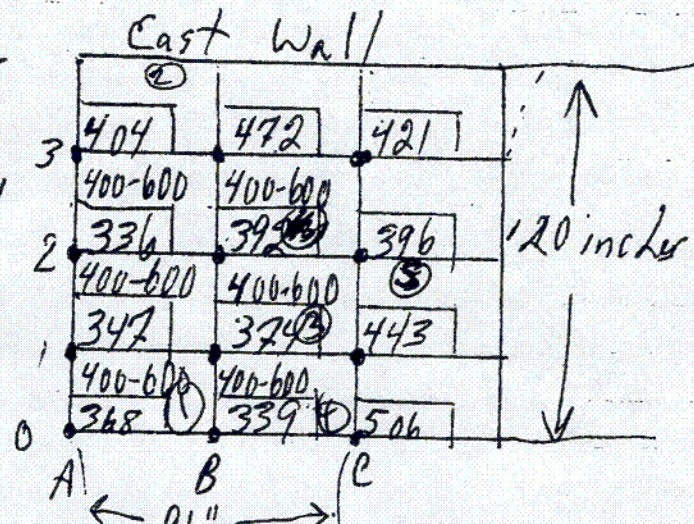 East Wall
2
404 472 421
3
400-600 400-600
336 392 396
2 120 inches
5
400-600 400-600
347 374 3 443
1
400-600 400-600
368 1 339 4 506
0
A B C